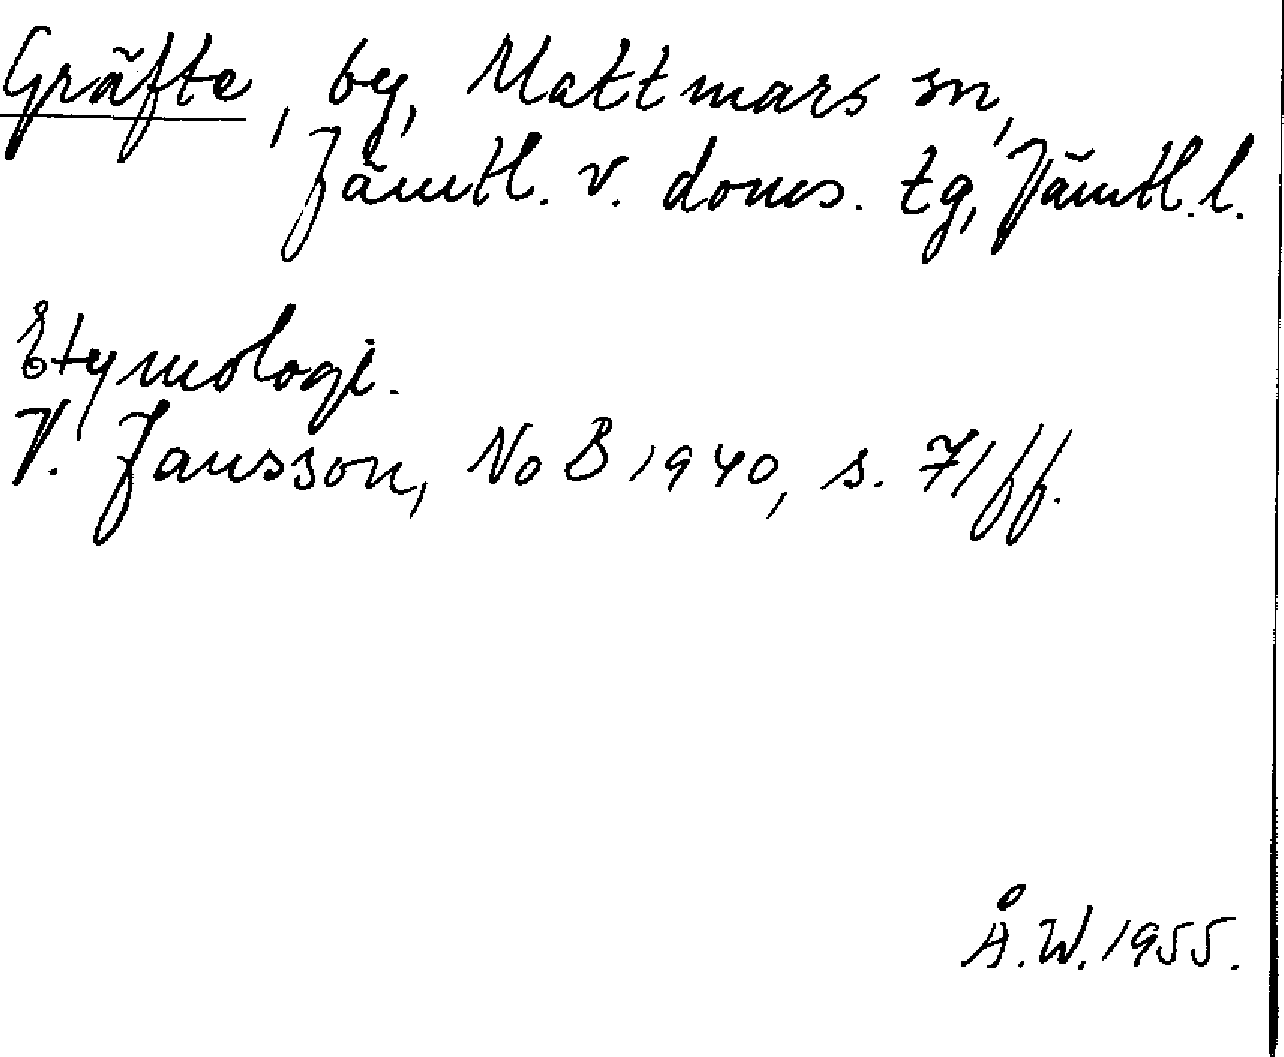 Gräfte, by, Mattmars sn,
Jämtl. v. doms. tg, Jämtl. l.
Etymologi.
V. Jansson, NoB 1940, s. 71 ff.
Å. W. 1955.